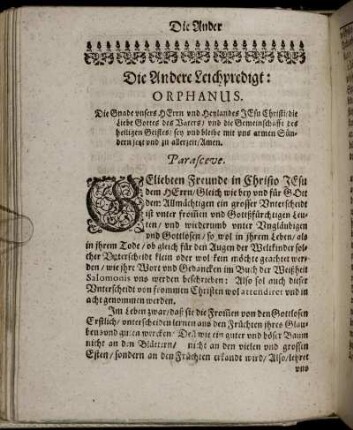 Die Ander
Die Andere Leichpredigt:
ORPHANUS.
Die Gnade unsers HErrn und Heylandes JEsu Christi/ die
Liebe Gottes des Vaters/ und die Gemeinschafft des
heiligen Geistes/ sey und bleibe mit uns armen Sün-
dern jetzt und zu allerzeit/ Amen.
Parasceve.
GEliebten Freunde in Christo JEsu
dem HErrn/ Gleich wie bey und für GOtt
dem Allmächtigen ein grosser Vnterscheidt
ist unter frommen und Gottsfürchtigen Leu-
ten/ und wiederumb unter Vngläubigen
und Gottlosen/ so wol in ihrem Leben/ als
in ihrem Tode/ ob gleich für den Augen der Weltkinder sol-
cher Vnterscheidt klein oder wol kein möchte geachtet wer-
den/ wie ihre Wort und Gedancken im Buch der Weißheit
Salomonis uns werden beschrieben: Also sol auch dieser
Vnterscheid von frommen Christen wol attendiret und in
acht genommen werden.
Im Leben zwar/ daß sie die Frommen von den Gottlosen
Erstlich/ unterscheiden lernen aus den Früchten ihres Glau-
ben und guten wercken/ Deñ wie ein guter und böser Baum
nicht an den Blättern/ nicht an den vielen und grossen
Esten/ sondern an den Früchten erkandt wird/ Also/ lehret
uns